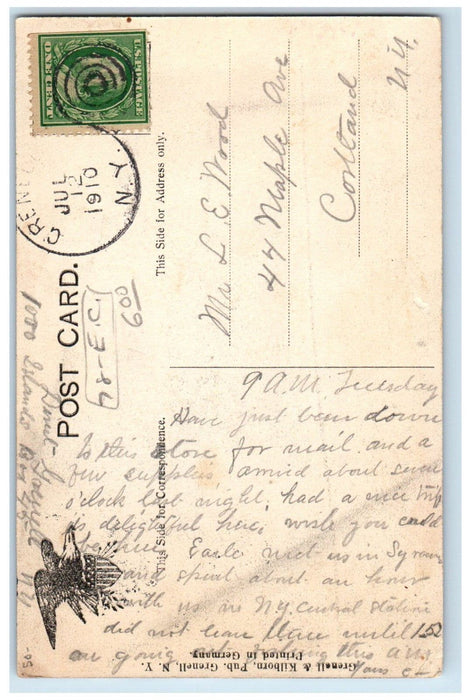 U.S. POSTAGE
ONE CENT
JUL
12
1910
N.Y.
POST CARD.
This Side for Correspondence.
This Side for Address only.
Grenell & Kilborn, Pub. Grenell, N. Y.
Printed in Germany.
78-E.C.
600
Mr L E Wood
44 Maple Ave
Cortland
N.Y.
1000 Islands
N Y
9 A.M. Tuesday
Have just been down
to this store for mail and a
few supplies arrived about seven
o'clock last night. had a nice trip
is delightful here, wish you could
be here. Earle met us in Syracuse
and spent about an hour
with us in N.Y. Central Station
did not leave there until 1:52
am going this am